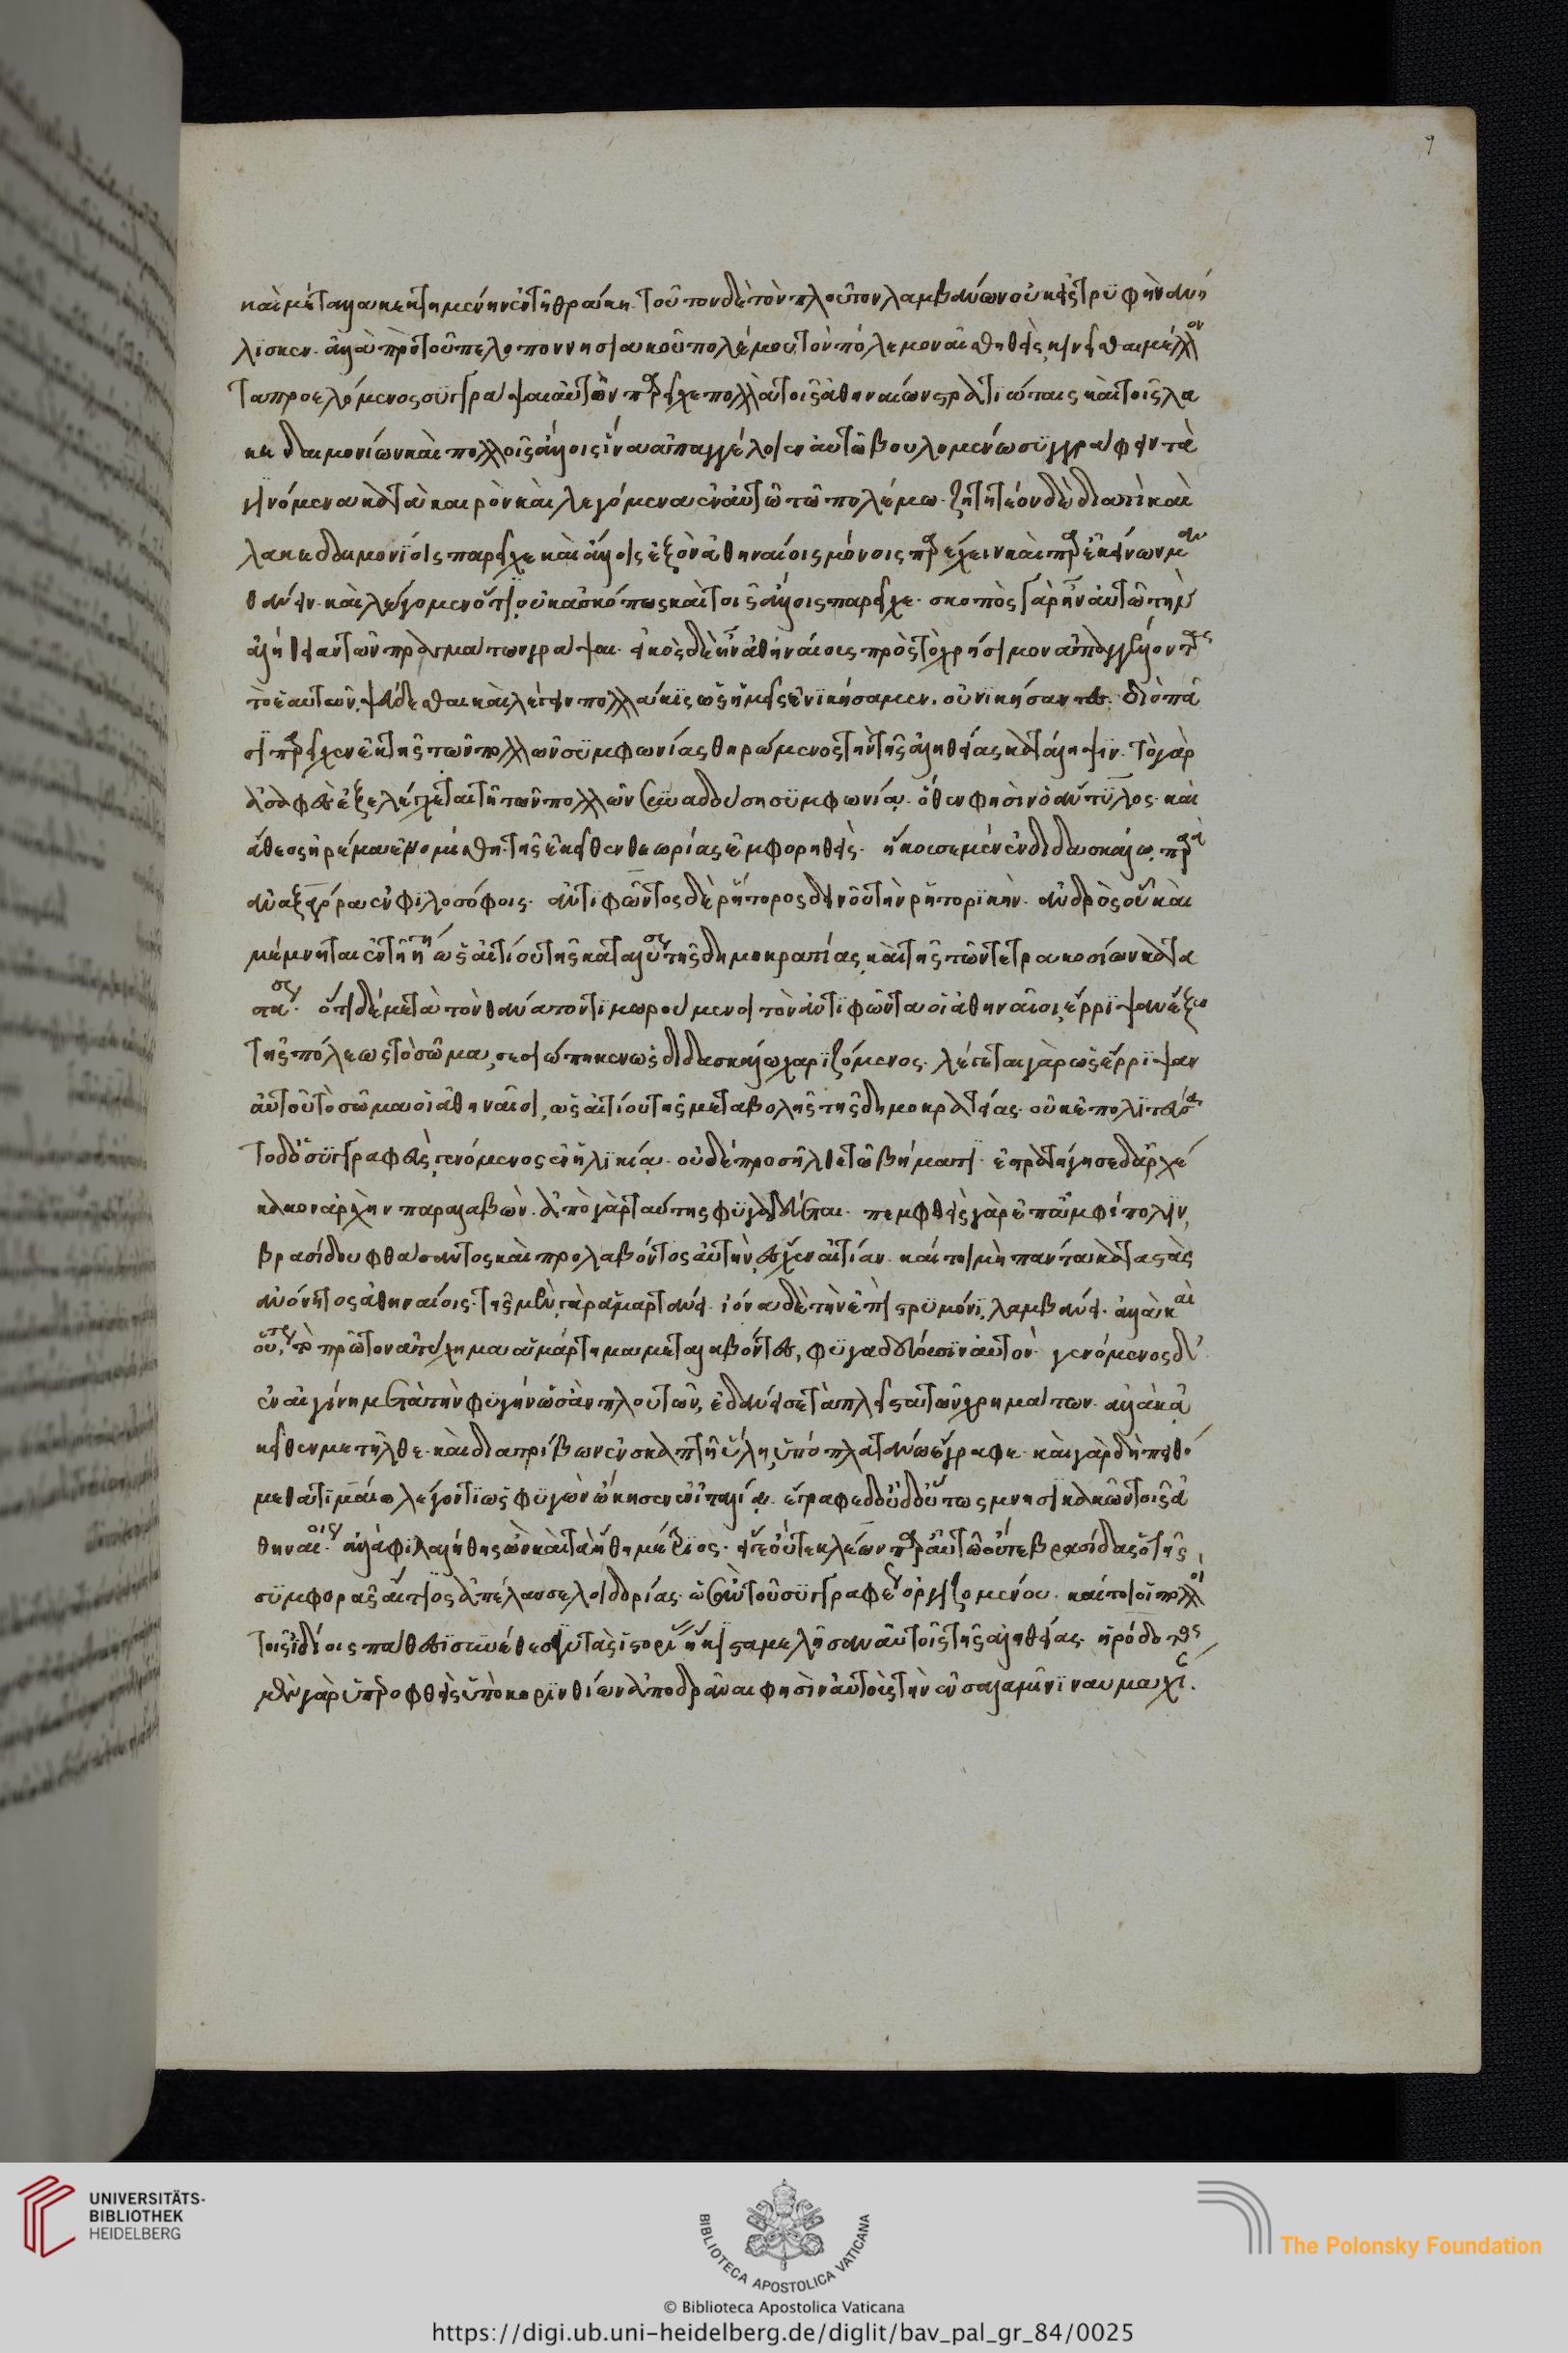 9
καὶ μέταλλα κεκτημένην ἐν τῇ θράκη. τοῦτον δὲ τὸν πλοῦτον λαμβάνων οὐκ εἰς τρυφὴν ἀνή
λισκεν. ἀλλὰ πρὸ τοῦ πελοποννησιακοῦ πολέμου τὸν πόλεμον αἰσθηθεὶς κινεῖσθαι μέλλον
τα προελόμενος συγγράψαι αὐτὸν παρεῖχε πολλὰ τοῖς ἀθηναίων στρατιώταις καὶ τοῖς λα
κεδαιμονίων καὶ πολλοῖς ἄλλοις ἵνα ἀπαγγέλοιεν αὐτῶ βουλομένω συγγράφειν τὰ
γινόμενα κατὰ καιρὸν καὶ λεγόμενα ἐν αὐτῶ τῶ πολέμω. ζητητέον δὲ διατί καὶ
λακεδαιμονίοις παρεῖχε καὶ ἄλλοις ἐξὸν ἀθηναίοις μόνοις παρέχειν καὶ παρ ἐκείνων μαν
θάνειν. καὶ λέγομεν ὅτι οὐκ ἀσκόπως καὶ τοῖς ἄλλοις παρεῖχε. σκοπὸς γὰρ ἦν αὐτῶ τὴν
ἀλήθειαν τῶν πραγμάτων γράψαι. εἰκὸς δὲ ἦν ἀθηναίοις πρὸς τὸ χρήσιμον ἀπαγγέλλοντας
τὸ ἑαυτῶν ψεύδεσθαι καὶ λέγειν πολλάκις ὡς ἡμεῖς ἐνικήσαμεν. οὐ νικήσαντες. διὸ πᾶ
σι παρεῖχεν ἐκ τῆς τῶν πολλῶν συμφωνίας θηρώμενος τὴν τῆς ἀληθείας κατάληψιν. τὸ γὰρ
ἀσαφὲς ἐξελέγχεται τῆ τῶν πολλῶν συναδούση συμφωνία. ὅθεν φησὶν ὁ ἄντυλος καὶ
ἄθεος ἠρέμα ἐνομίσθη. τῆς ἐκεῖθεν θεωρίας ἐμφορηθείς. ἤκουσε μὲν ἐν διδασκάλω παρὰ
ἀναξαγόρα ἐν φιλοσόφοις. ἀντιφῶντος δὲ ῥήτορος δεινοῦ τὴν ῥητορικὴν. ἀνδρὸς οὗ καὶ
μέμνηται ἐν τῆ η ὡς αἰτίου τῆς καταλύσεως τῆς δημοκρατίας καὶ τῆς τῶν τετρακοσίων κατα
στάσεως. ὅτι δὲ μετὰ τὸν θάνατον τιμωρούμενοι τὸν ἀντιφῶντα οἱ ἀθηναῖοι ἔρριψαν ἔξω
τῆς πόλεως τὸ σῶμα, σεσιώπηκεν ὡς διδασκάλω χαριζόμενος. λέγεται γὰρ ὡς ἔρριψαν
αὐτοῦ τὸ σῶμα οἱ ἀθηναῖοι, ὡς αἰτίου τῆς μεταβολῆς τῆς δημοκρατίας. οὐκ ἐπολιτεύσα
το δ ὁ συγγραφεὺς γενόμενος ἐν ἡλικία. οὐδὲ προσῆλθε τῶ βήματι. ἐστρατήγησε δ ἀρχέ
κακον ἀρχὴν παραλαβών. ἀπὸ γὰρ ταύτης φυγαδεύεται. πεμφθεὶς γὰρ ἐπ ἀμφίπολιν,
βρασίδου φθάσαντος καὶ προλαβόντος αὐτὴν ἔσχεν αἰτίαν. καίτοι μὴ πάντα καταστὰς
ἀνόνητος ἀθηναίοις. τῆς μὲν γὰρ ἁμαρτάνει. ἰόνα δὲ τὴν ἐπὶ στρυμόνι λαμβάνει. ἀλλὰ καὶ
οὕτως τὸ πρῶτον ἀτύχημα ἁμάρτημα μεταλαβόντες, φυγαδεύουσιν αὐτόν. γενόμενος δ
ἐν αἰγίνη μετὰ τὴν φυγὴν ὡς ἂν πλουτῶν, ἐδάνεισε τὰ πλεῖστα τῶν χρημάτων. ἀλλὰ κἀ
κεῖθεν μετῆλθε. καὶ διατρίβων ἐν σκαπτῆ ὕλη ὑπὸ πλατάνω ἔγραφε. καὶ γὰρ δὴ πειθώ
μεθα τιμαίω λέγοντι ὡς φυγὼν ὤκησεν ἐν ἰταλία. ἔγραφε δ οὐδ οὕτως μνησικακῶν τοῖς ἀ
θηναίοις. ἀλλὰ φιλαλήθης ὢν καὶ τὰ ἤθη μέτριος. εἴγε οὔτε κλέων παρ αὐτῶ οὔτε βρασίδας ὁ τῆς
συμφορᾶς αἴτιος ἀπέλαυσε λοιδορίας. ὡς ἂν τοῦ συγγραφέως ὀργιζομένου. καίτοι οἱ πολλοὶ
τοῖς ἰδίοις πάθεσι συνέθεσαν τὰς ἱστορίας ἥκιστα μελῆσαν αὐτοῖς τῆς ἀληθείας. ἡρόδοτος
μὲν γὰρ ὑπεροφθεὶς ὑπὸ κορινθίων ἀποδρᾶναι φησὶν αὐτοὺς τὴν ἐν σαλαμῖνι ναυμαχί.
UNIVERSITÄTS-
BIBLIOTHEK
HEIDELBERG
BIBLIOTECA APOSTOLICA VATICANA
The Polonsky Foundation
© Biblioteca Apostolica Vaticana
https://digi.ub.uni-heidelberg.de/diglit/bav_pal_gr_84/0025